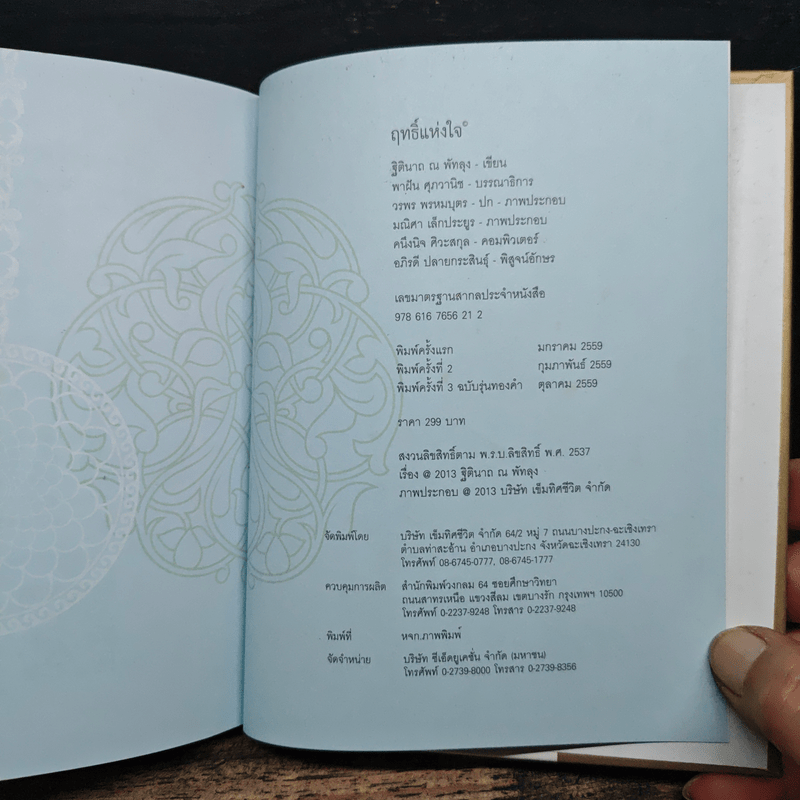 ฤทธิ์แห่งใจ®
ฐิตินาถ ณ พัทลุง - เขียน
พาฝัน ศุภวานิช - บรรณาธิการ
วรพร พรหมบุตร - ปก - ภาพประกอบ
มณิศา เล็กประยูร - ภาพประกอบ
คนึงนิจ ศิวะสกุล - คอมพิวเตอร์
อภิรดี ปลายกระสินธุ์ - พิสูจน์อักษร
เลขมาตรฐานสากลประจำหนังสือ
978 616 7656 21 2
พิมพ์ครั้งแรก มกราคม 2559
พิมพ์ครั้งที่ 2 กุมภาพันธ์ 2559
พิมพ์ครั้งที่ 3 ฉบับรุ่นทองคำ ตุลาคม 2559
ราคา 299 บาท
สงวนลิขสิทธิ์ตาม พ.ร.บ.ลิขสิทธิ์ พ.ศ. 2537
เรื่อง @ 2013 ฐิตินาถ ณ พัทลุง
ภาพประกอบ @ 2013 บริษัท เข็มทิศชีวิต จำกัด
จัดพิมพ์โดย บริษัท เข็มทิศชีวิต จำกัด 64/2 หมู่ 7 ถนนบางปะกง-ฉะเชิงเทรา
ตำบลท่าสะอ้าน อำเภอบางปะกง จังหวัดฉะเชิงเทรา 24130
โทรศัพท์ 08-6745-0777, 08-6745-1777
ควบคุมการผลิต สำนักพิมพ์วงกลม 64 ซอยศึกษาวิทยา
ถนนสาทรเหนือ แขวงสีลม เขตบางรัก กรุงเทพฯ 10500
โทรศัพท์ 0-2237-9248 โทรสาร 0-2237-9248
พิมพ์ที่ หจก.ภาพพิมพ์
จัดจำหน่าย บริษัท ซีเอ็ดยูเคชั่น จำกัด (มหาชน)
โทรศัพท์ 0-2739-8000 โทรสาร 0-2739-8356